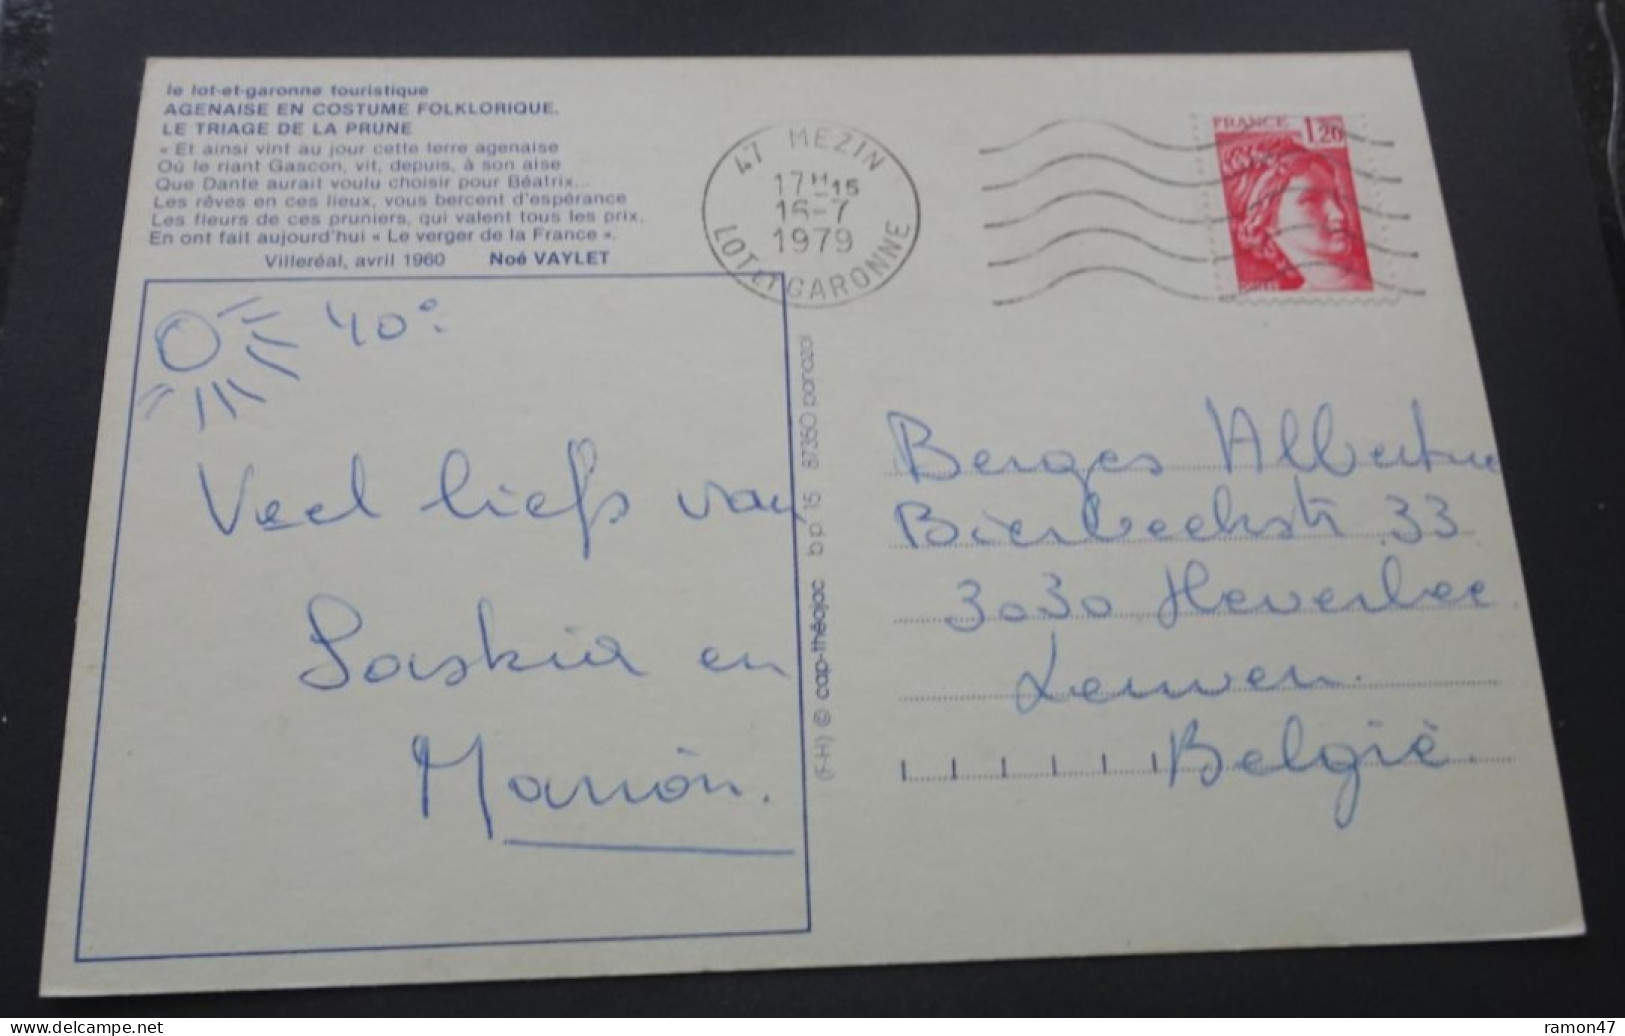 le lot-et-garonne touristique
AGENAISE EN COSTUME FOLKLORIQUE.
LE TRIAGE DE LA PRUNE
« Et ainsi vint au jour cette terre agenaise
Où le riant Gascon, vit, depuis, à son aise
Que Dante aurait voulu choisir pour Béatrix...
Les rêves en ces lieux, vous bercent d'espérance
Les fleurs de ces pruniers, qui valent tous les prix.
En ont fait aujourd'hui « Le verger de la France ».
Villeréal, avril 1960 Noé VAYLET
47 MEZIN
17H15
16-7
1979
LOT ET GARONNE
FRANCE 1,20
40°
Veel liefs van
Saskia en
Marion.
(F-H) © cap-théojac bp 15 87350 panazol
Berges Albertine
Bierbeekstr 33
3030 Heverlee
Leuven.
België.
ramon47